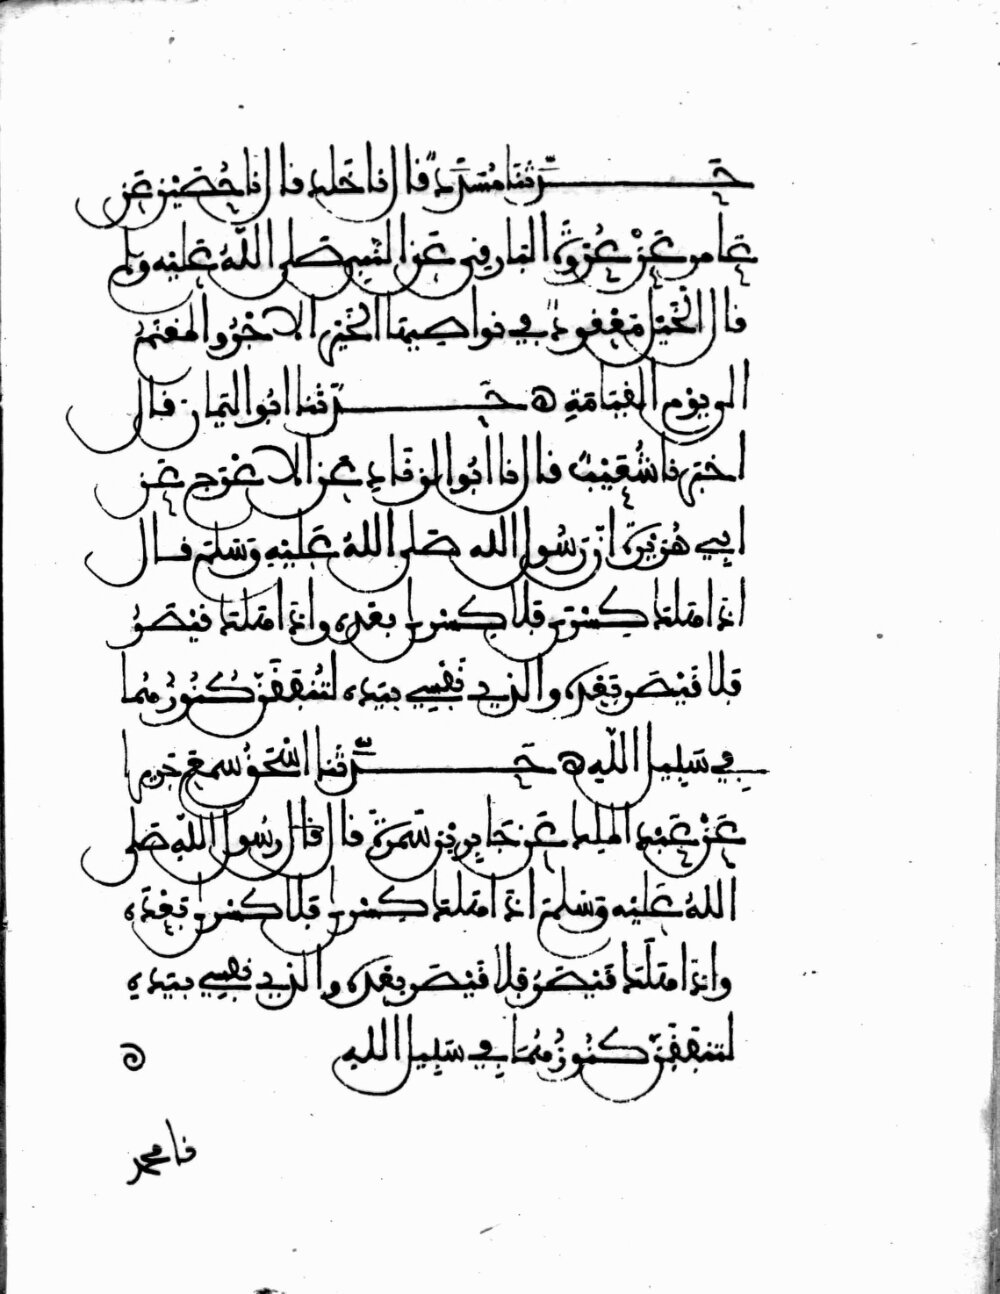 حَدَّثَنَا مُسَدَّدٌ قال نا خَلد قال نا حُصَيْن عَن
عَامر عَنْ عُرْوَةَ البارقي عَن النبي صَلى اللهُ عَلَيْه وسلم
قال الخَيْلُ مَعْقُودٌ في نواصيها الخَيْر الاَجْرُ والمغنَمُ
الى يوْم القيَامَةِ ۞ حَدَّثنا ابُو اليَمان قال
اخبَرنا شُعَيْبٌ قال نا ابُو الزِنَادِ عَن الاَعْرَج عَن
ابِي هُرَيْرَةَ انّ رَسُول الله صَلى اللهُ عَلَيْهِ وَسَلم قال
اذا هلك كِسْرَى فلا كِسْرى بعْده واذا هلك قَيْصَرُ
فلا قَيْصَر بَعْده والذي نَفْسِي بيَده لتُنفَقَنّ كُنُوزُهُما
في سَبِيل اللّهِ ۞ حَدَّثنا اسْحَقُ سمعَ جَريرا
عَنْ عَبْد الملك عَن جَابِر بْن سَمرَة قال قال رسُول اللّهِ صَلى
اللهُ عَلَيْه وَسَلم اذا هَلك كسْرى فلا كسْرى بَعْدَه
واذا هلَك قَيْصَرُ فلا قَيْصَر بعْده والذي نفسِي بيَدهِ
لتنفقَنّ كنُوزُهُمَا في سَبِيل اللهِ ۞
نا محمد